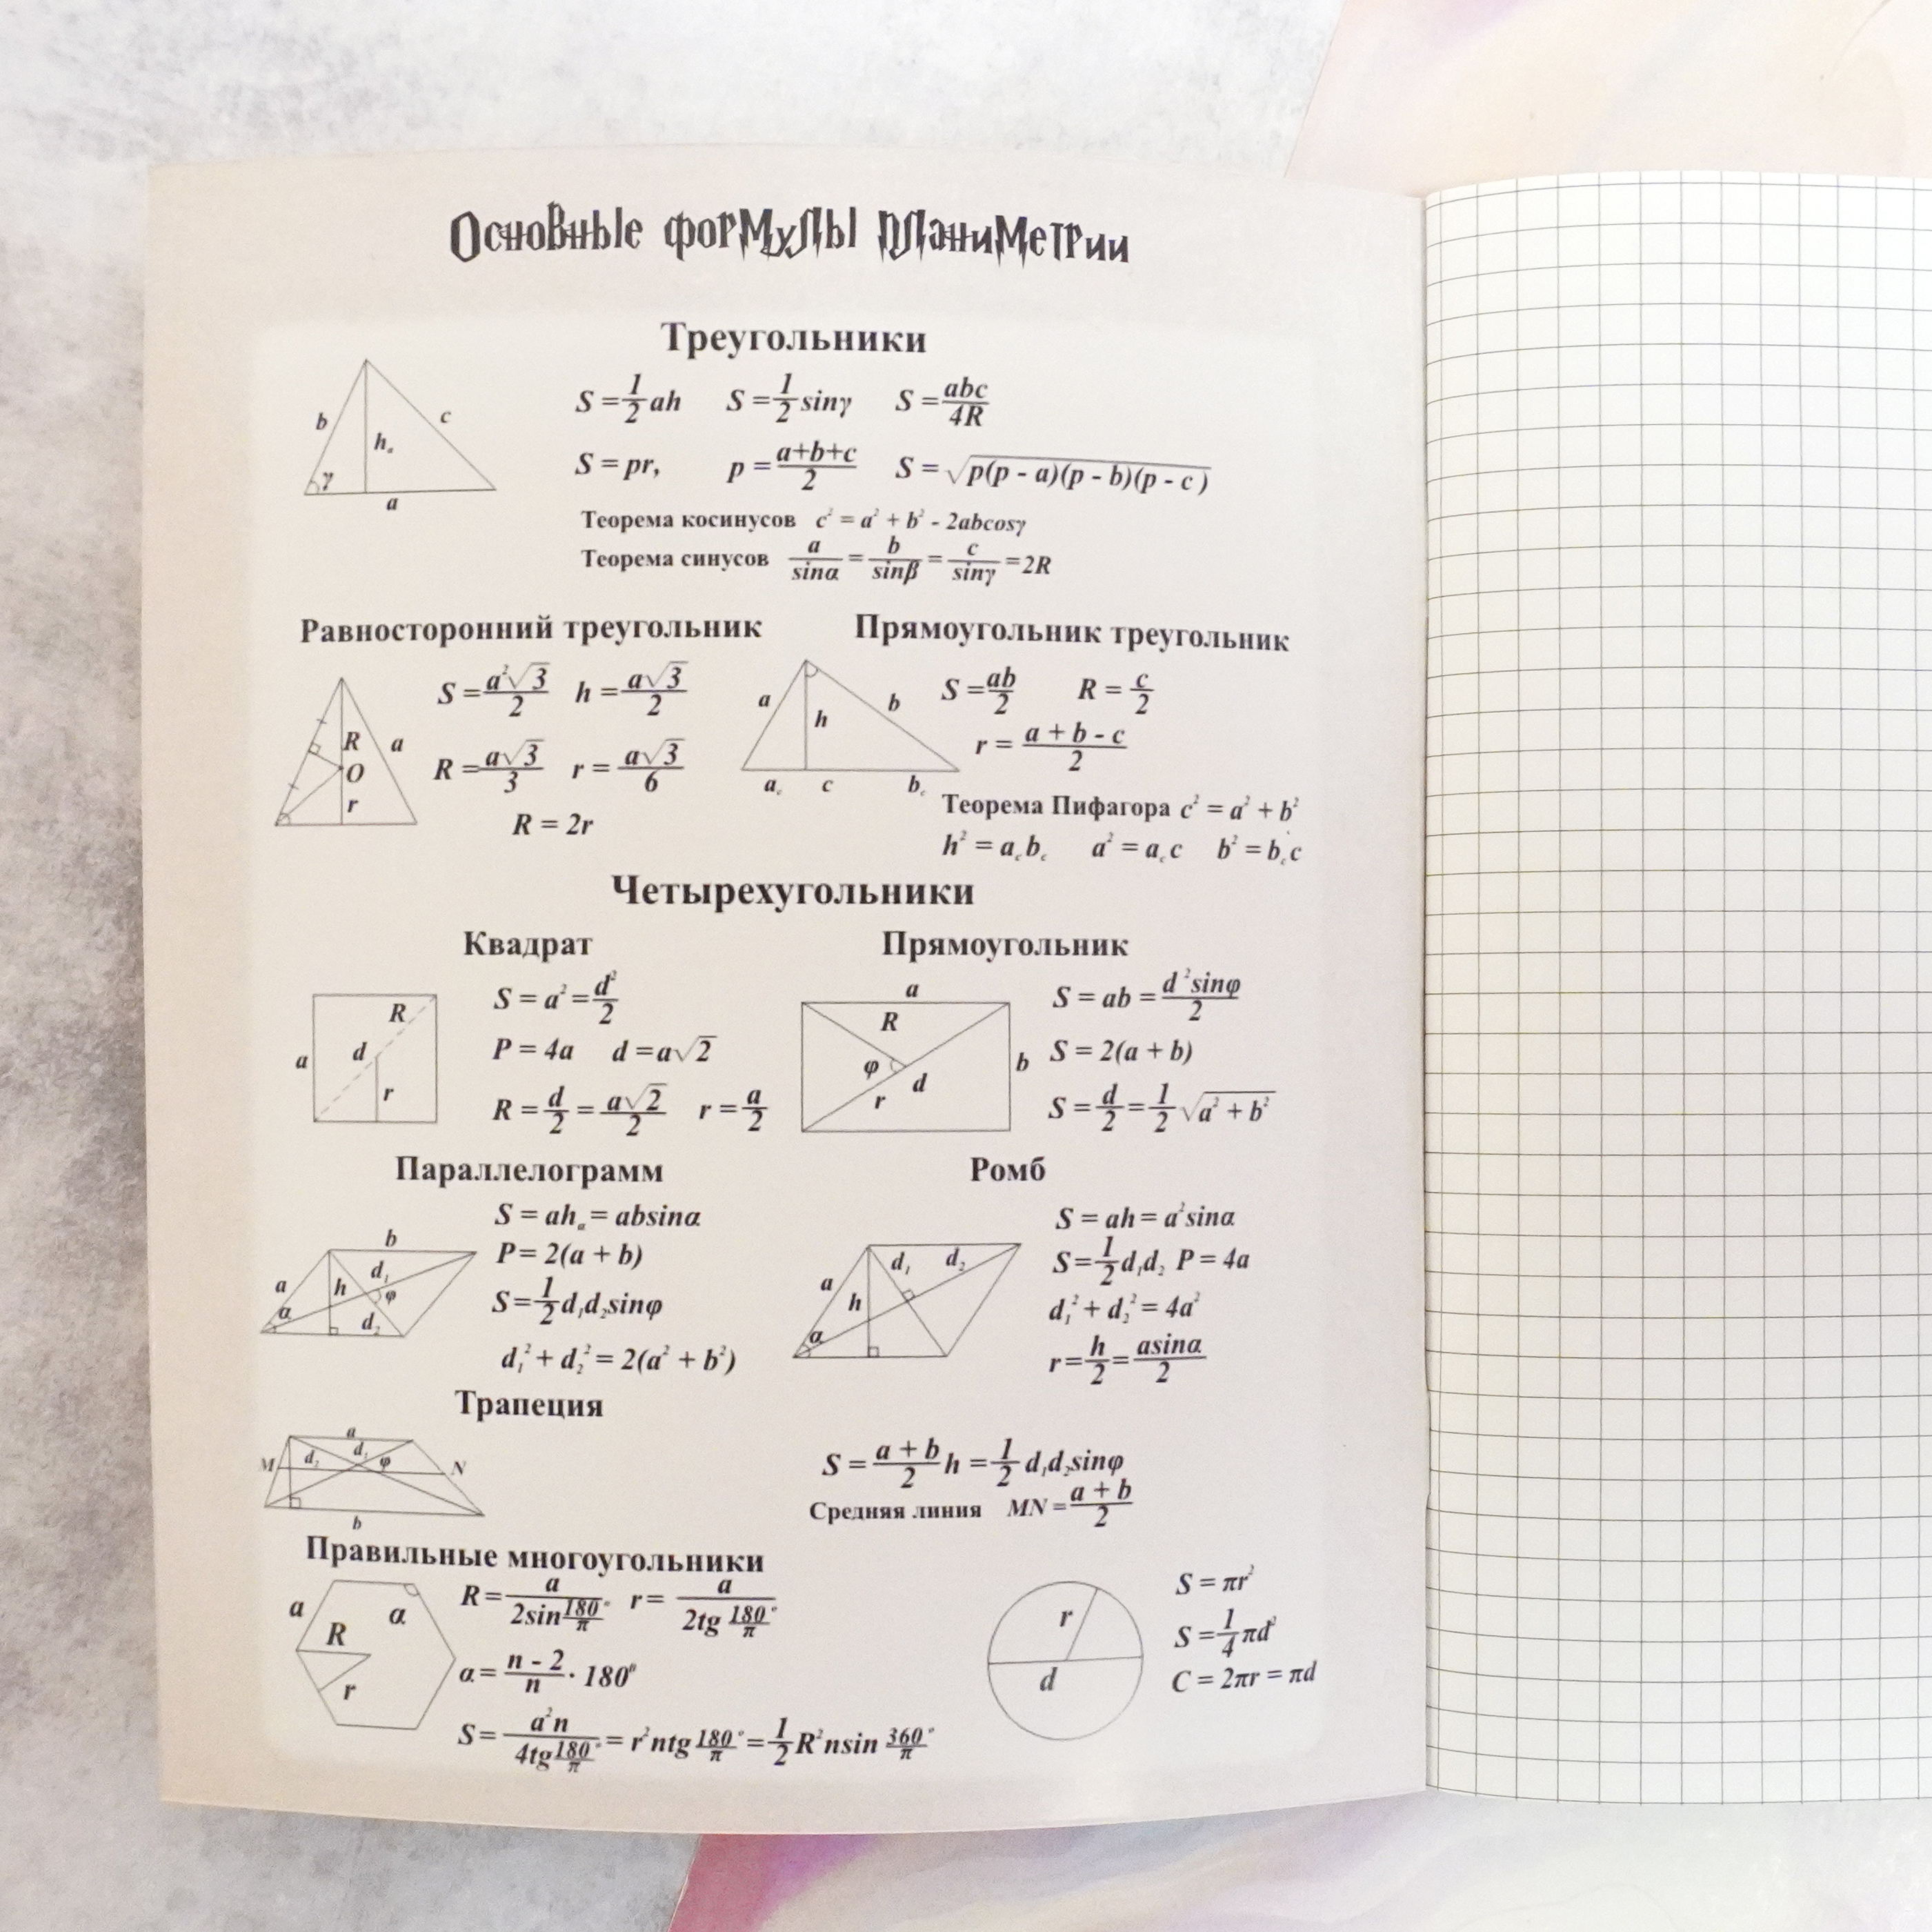 Основные формулы планиметрии
Треугольники
b c hₐ γ a
S = 1/2 ah S = 1/2 sinγ S = abc/4R
S = pr, p = a+b+c/2 S = √p(p - a)(p - b)(p - c)
Теорема косинусов c² = a² + b² - 2abcosγ
Теорема синусов a/sinα = b/sinβ = c/sinγ = 2R
Равносторонний треугольник
R a O r
S = a²√3/2 h = a√3/2
R = a√3/3 r = a√3/6
R = 2r
Прямоугольник треугольник
a h b a꜀ c b꜀
S = ab/2 R = c/2
r = a + b - c/2
Теорема Пифагора c² = a² + b²
h² = a꜀b꜀ a² = a꜀c b² = b꜀c
Четырехугольники
Квадрат
R a d r
S = a² = d²/2
P = 4a d = a√2
R = d/2 = a√2/2 r = a/2
Прямоугольник
a R φ d b r
S = ab = d²sinφ/2
S = 2(a + b)
S = d/2 = 1/2 √a² + b²
Параллелограмм
b a d₁ h φ α d₂
S = ahₐ = absinα
P = 2(a + b)
S = 1/2 d₁d₂sinφ
d₁² + d₂² = 2(a² + b²)
Ромб
d₁ d₂ a h α
S = ah = a²sinα
S = 1/2 d₁d₂ P = 4a
d₁² + d₂² = 4a²
r = h/2 = asinα/2
Трапеция
a M d₂ d₁ φ N b
S = a + b/2 h = 1/2 d₁d₂sinφ
Средняя линия MN = a + b/2
Правильные многоугольники
a α R r
R = a/2sin180/π° r = a/2tg 180/π°
α = n - 2/n · 180⁰
S = a²n/4tg180/π° = r²ntg 180/π° = 1/2 R²nsin 360/π°
r d
S = πr²
S = 1/4 πd²
C = 2πr = πd